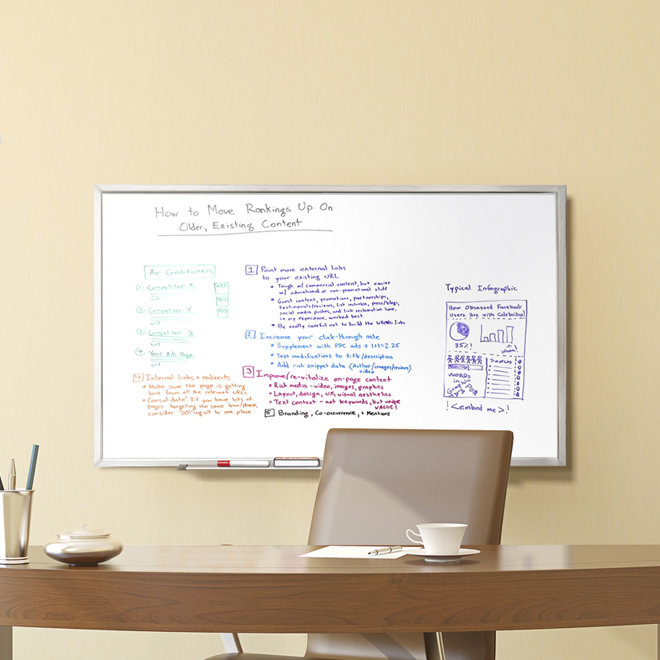 How to Move Rankings Up On
Older, Existing Content
Air Conditioners
① Competitor X
② Competitor Y
③ Competitor Z
④ Your AC Page
1 Point more external links
to your existing URL
• Tough w/ commercial content, but easier
w/ educational or non-promotional stuff
• Guest content, promotions, partnerships,
testimonials/reviews, list inclusion, press/blogs,
social media pushes, and link reclamation have,
in my experience, worked best.
• Be really careful not to build the wrong links
2 Increase your click-through rate
• Supplement with PPC ads → 1+1=2.25
• Test modifications to title/description
• Add rich snippet data (Author/images/reviews)
video
3 Improve/re-vitalize on-page content
• Rich media - video, images, graphics
• Layout, design, UX, visual aesthetics
• Text content - not keywords, but unique
VALUE!
4 Internal links + redirects
• Make sure the page is getting
love from all the relevant URLs
• Consolidate! If you have lots of
pages targeting the same term/phrase,
consider 301'ing all to one place
5 Branding, Co-occurrence, + Mentions
Typical Infographic
How Obsessed Facebook
Users Are with Celebrities!
35%!
Sources
WORDS
! <embed me> !